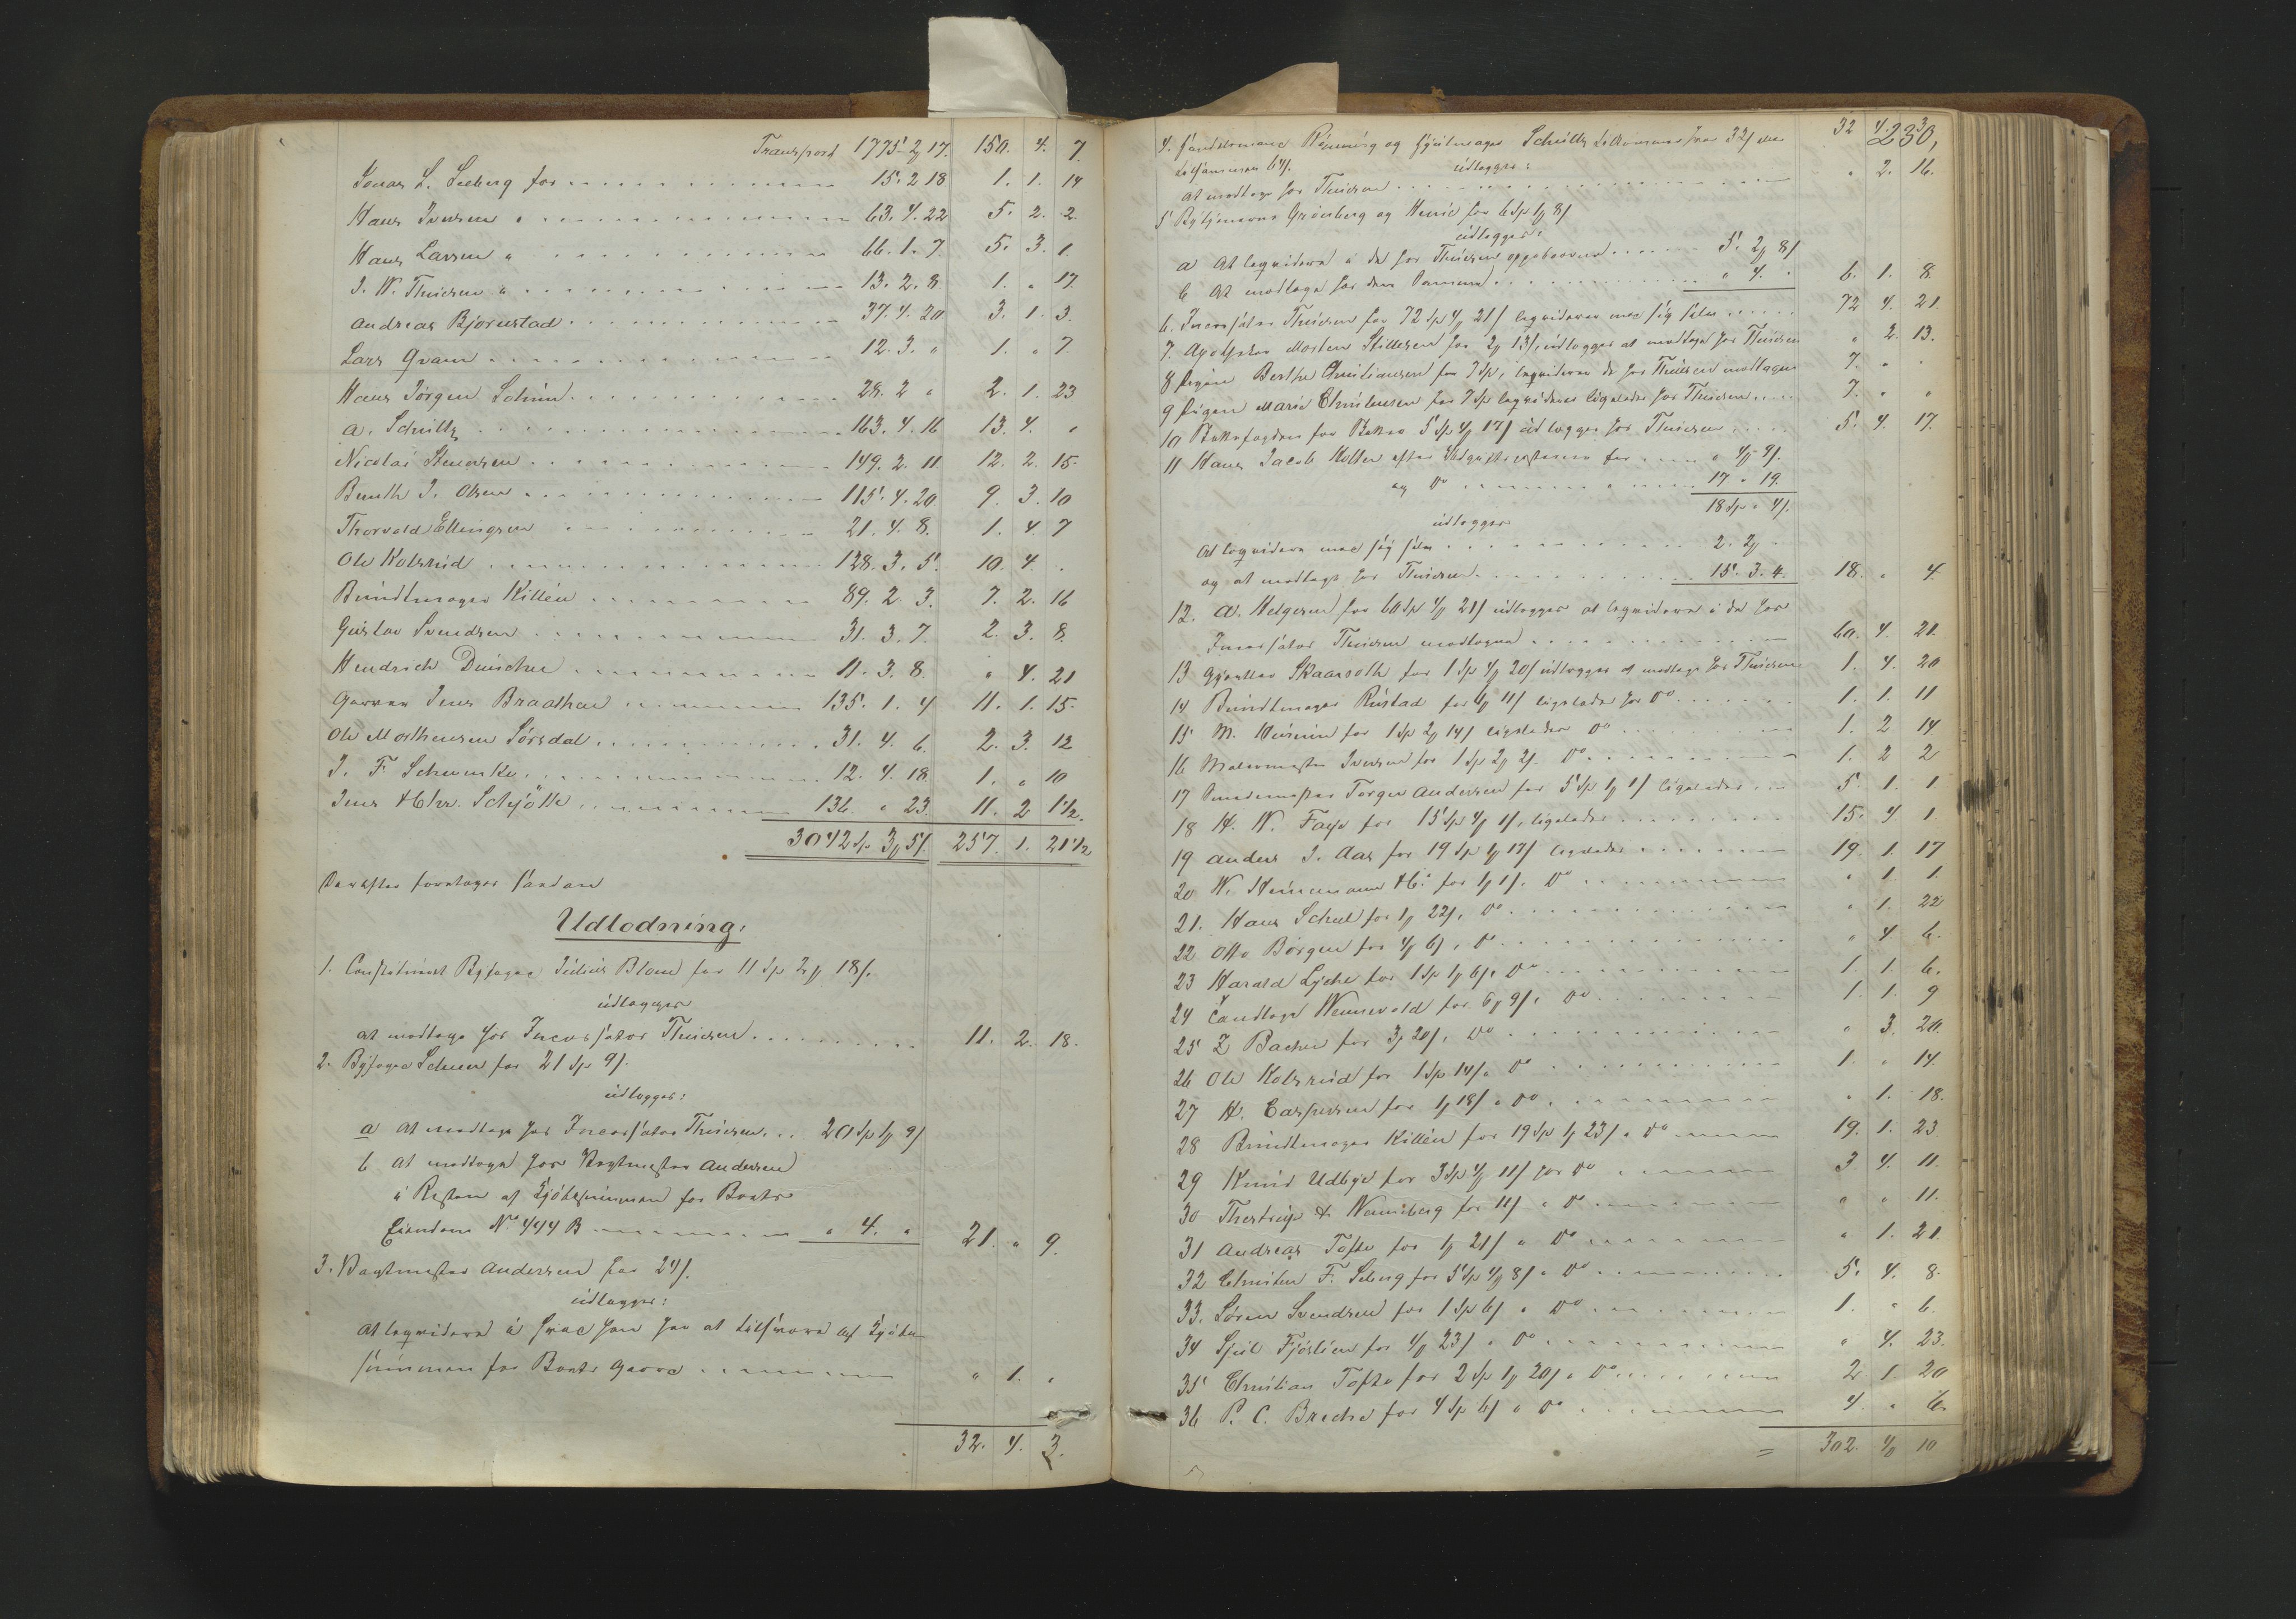 Transport 1775 - 2 17. 150. 4. 7.
Jonas L. Seeberg for 15. 2 18 1. 1. 14
Hans Iversen " 63. 4. 22 5. 2. 2.
Hans Larsen " 66. 1. 7. 5. 3. 1
J. W. Thuesen " 13. 2. 8. 1. " 17.
Andreas Bjørnstad 37. 4. 20. 3. 1. 3.
Lars Qvam 12. 3. " 1. " 7.
Hans Jörgen 28. 2 " 2. 1. 23
A. Schultz 163. 4. 16 13. 4. "
Nicolai 149. 2. 11. 12. 2. 15.
Bernth J. Olsen 115. 4. 20 9. 3. 10
Thorvald Ellingsen 21. 4. 8. 1. 4 7
Ole Kolsrud 128. 3. 5. 10. 4. .
Bundtmager Killen 89. 2. 3. 7. 2. 16
Gustav Svendsen 31. 3. 7. 2. 3. 8.
Hendrich Duscher 11. 3. 8. " 4. 21
Garver Jens Braathen 135. 1. 4 11. 1. 15.
Ole Mathensen Sörsdal 31. 4. 6. 2. 3. 12
J. F. Schwenke 12. 4. 18. 1. " 10
Jens & Chr. Schjöth 136 " 23. 11. 2 1½.
3042 Sp 3 5 257. 1. 21½
Derefter foretoges saadan
Udlodning:
1. Constitueret Byfoged Julius Blom for 11 Sp 2 18
udlægges
at modtage hos Incassator Thuesen 11. 2. 18.
2. Byfoged for 21 Sp 9
udlægges:
a at modtage hos Incassator Thuesen 20 Sp 1 9
b at modtage hos Vagtmester Andersen
i Resten af Kjöbesummen for Boets
Eiendom No 444 B " 4. " 21. " 9.
3. Vagtmester Andersen for 24
udlægges:
at leqvidere i hvad han har at tilsvare af Kjöbe-
summen for Boets Gaard " 1. "
32. 4. 3.
230,
4. Henning og Schultz for 32 32 4. 3
udlægges:
at modtage hos Thuesen " 2. 16.
5 Grönberg og for 6 Sp 1 8
udlægges:
a at leqvidere i de hos Thuesen 5. 2 8
b at modtage hos den Samme " 4. " 6. 1. 8.
6. Incassator Thuesen for 72 Sp 4 21 leqvideres med sig selv 72 4. 21.
7. Apotheker Morten for 2 13, udlægges at modtage hos Thuesen " 2. 13.
8 Pigen Berthe Christiansen for 7 Sp, leqviderer de hos Thuesen modtagne 7. " "
9 Pigen Marie Christensen for 7 Sp leqviderer ligeledes hos Thuesen 7. " "
10 for 5 Sp 4 17 udlægges hos Thuesen 5. 4. 17.
11 Hans Jacob efter for " 4 9
og Do 17 " 19.
18 Sp " 4
udlægges
at leqvidere med sig selv 2. 2 "
og at modtage hos Thuesen 15. 3. 4. 18. " 4.
12. A. Helgesen for 60 Sp 4 21 udlægges at leqvidere i de hos
Incassator Thuesen modtagne 60. 4. 21.
13 for 1 Sp 4 20 udlægges at modtage hos Thuesen 1. 4. 20
14 Bundtmager Rustad for 6 11 ligeledes hos Do 1. 1. 11
15 M. for 1 Sp 2 14 ligeledes Do 1. 2 14
16 Malermester Iversen for 1 Sp 2 2 Do 1. 2 2
17 Torger Andersen for 5 Sp 1 1 ligeledes 5. 1. 1.
18 H. W. Faye for 15 Sp 4 1, ligeledes 15. 4. 1.
19 Anders J. Aas for 19 Sp 1 17 ligeledes 19. 1. 17
20 W. Heinemann & Co for 1 1, Do " 1. 1.
21. Hans for 1 22, Do " 1. 22
22 Otto Börgen for 4 6, Do " 4 6.
23 Harald Lyche for 1 Sp 1 6, Do 1. 1. 6.
24 Wennevold for 6 9, Do 1. 1. 9
25 Z Bache for 3 20, Do " 3. 20.
26 Ole Kolsrud for 1 Sp 14, Do 1. " 14.
27 H. Caspersen for 1 18 " Do " 1. 18.
28 Bundtmager Killen for 19 Sp 1 23 " Do 19. 1. 23
29 Knud Udbye for 3 Sp 4 11 hos Do 3. 4. 11.
30 & Wenneberg for 11 " Do " " 11.
31 Andreas Tofte for 1 21 " Do " 1. 21
32 Christen F. Seberg for 5 Sp 4 8 " Do 5. 4. 8.
33. Sören Svendsen for 1 Sp 6 " Do 1. " 6.
34 for 4 23 " Do " 4. 23.
35 Christian Tofte for 2 Sp 1 20 " Do 2 1. 20
36 P. C. for 4 Sp 6 " Do 4. " 6.
= 302. 4 10